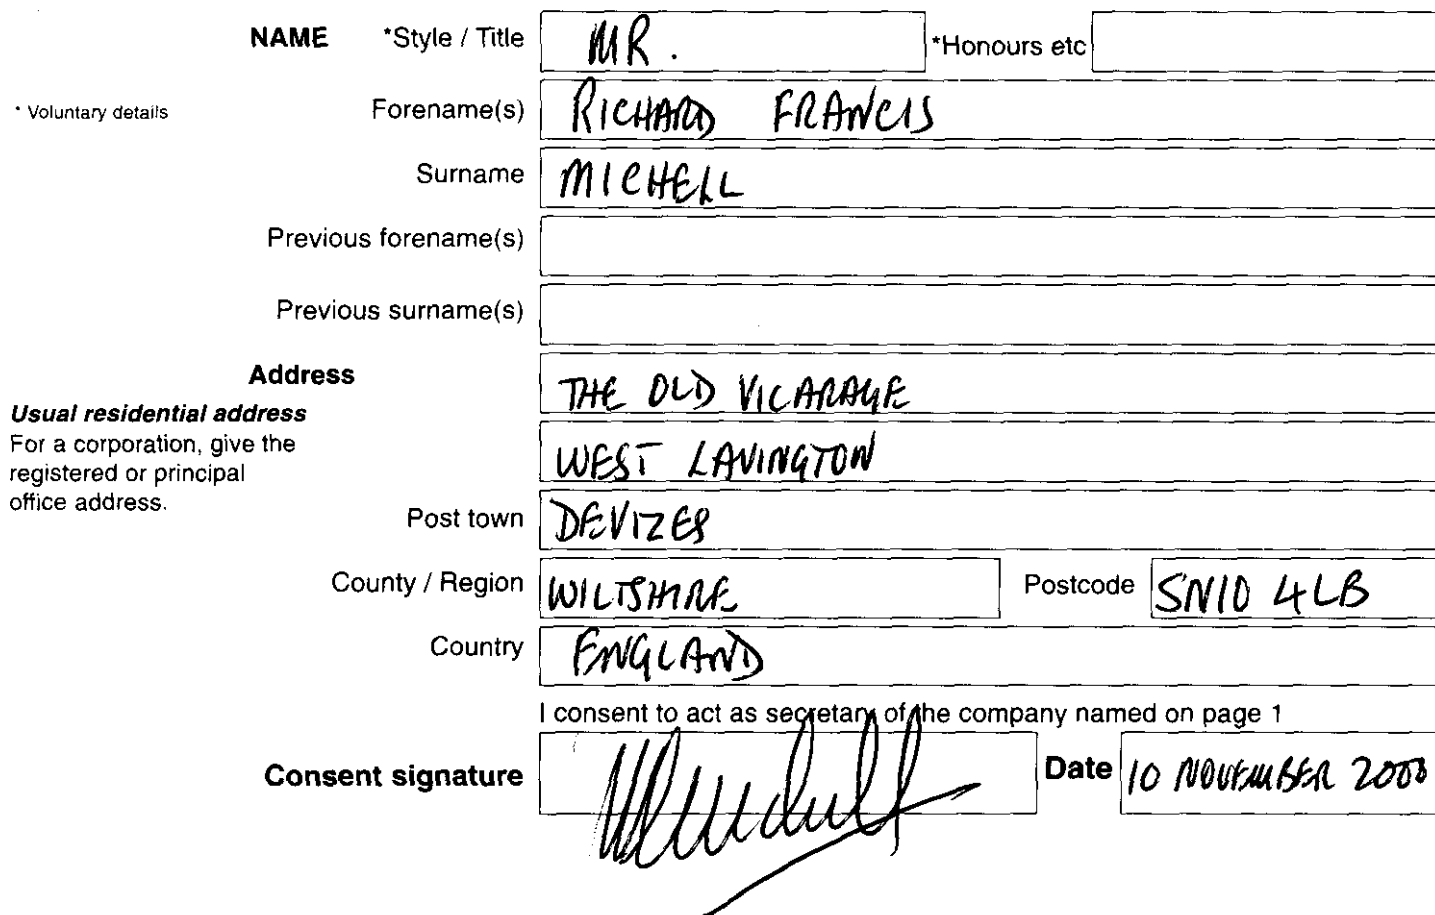 NAME *Style / Title MR. *Honours etc
* Voluntary details Forename(s) RICHARD FRANCIS
Surname MICHELL
Previous forename(s)
Previous surname(s)
Address THE OLD VICARAGE
Usual residential address
For a corporation, give the WEST LAVINGTON
registered or principal
office address.
Post town DEVIZES
County / Region WILTSHIRE Postcode SN10 4LB
Country ENGLAND
I consent to act as secretary of the company named on page 1
Consent signature Date 10 NOVEMBER 2000